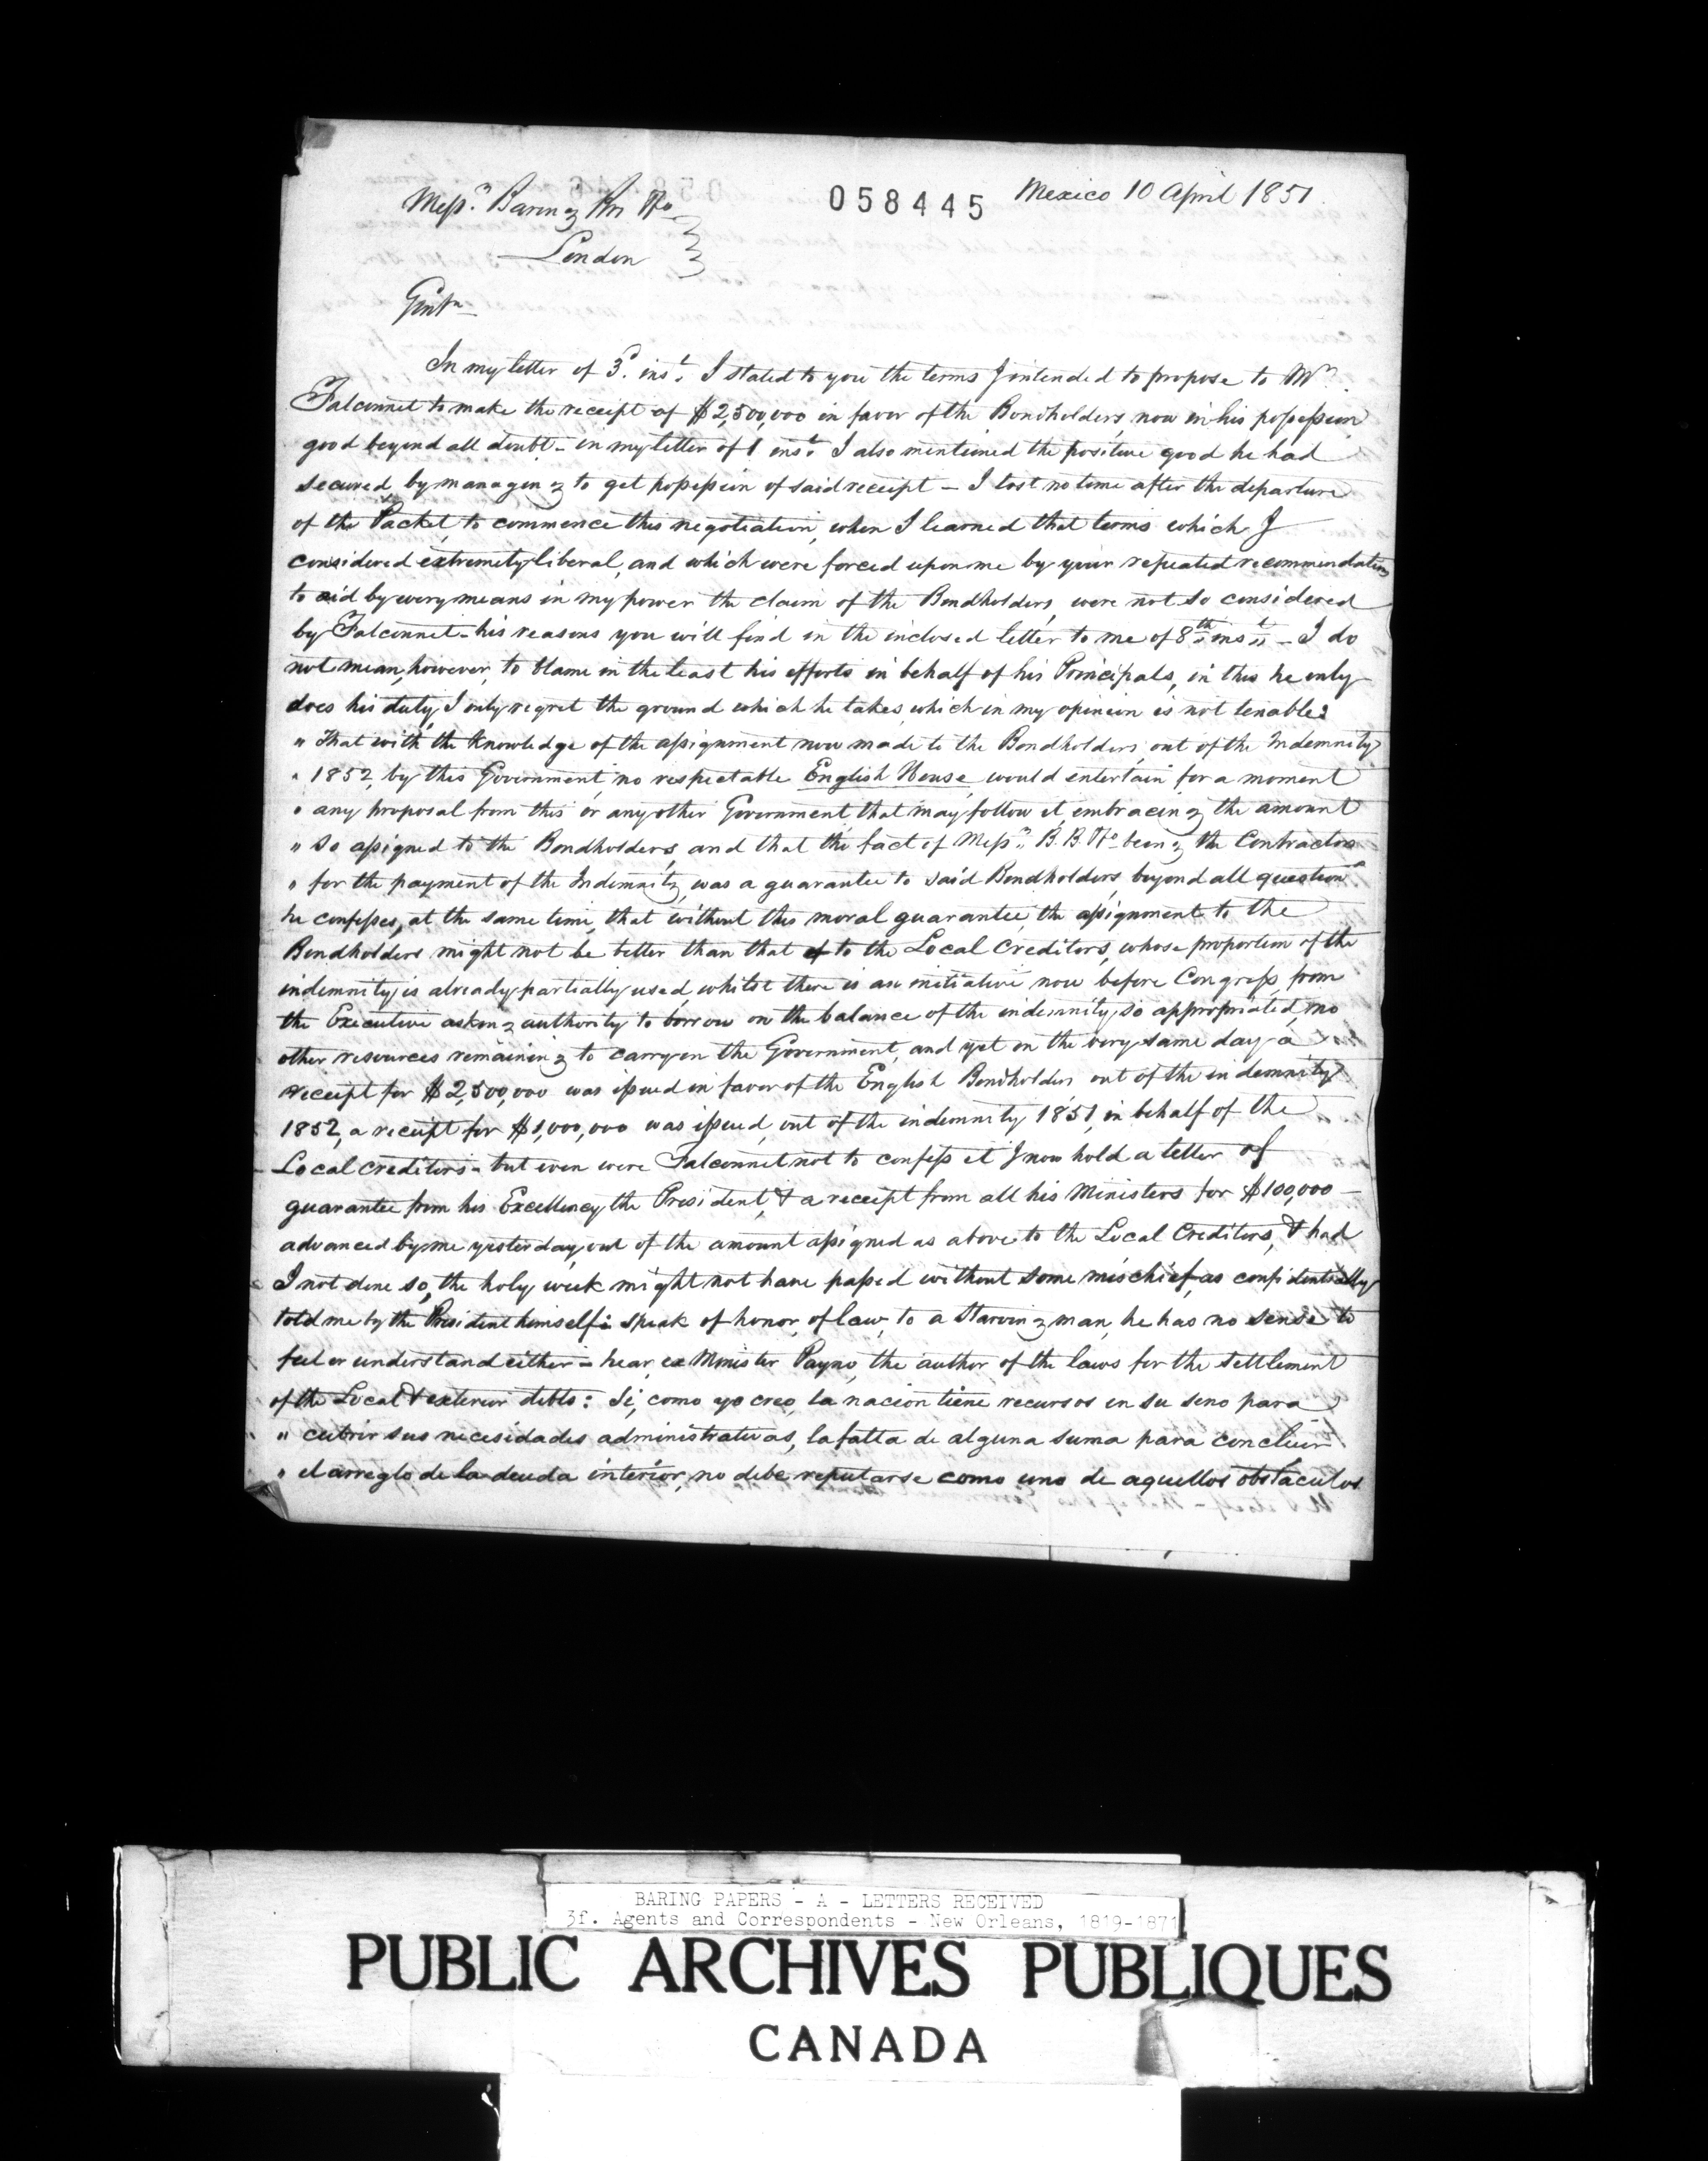 Messrs. Baring Brs & Co
058445
Mexico 10 April 1851.
London
Gentn
In my letter of 3d. inst. I stated to you the terms I intended to propose to Mr.
Falconnet to make the receipt of $2,500,000 in favor of the Bondholders, now in his possession
good beyond all doubt - in my letter of 1 inst. I also mentioned the positive good he had
secured by managing to get possession of said receipt - I lost no time after the departure
of the Packet, to commence this negotiation, when I learned that terms which I
considered extremely liberal, and which were forced upon me by your repeated recommendations
to aid by every means in my power the claim of the Bondholders, were not so considered
by Falconnet - his reasons you will find in the inclosed letter to me of 8th inst - I do
not mean, however, to blame in the least his efforts in behalf of his Principals, in this he only
does his duty, I only regret the ground which he takes, which in my opinion is not tenable:
" That with the knowledge of the assignment now made to the Bondholders, out of the Indemnity
" 1852, by this Government, no respectable English House would entertain for a moment
" any proposal from this or any other Government, that may follow it, embracing the amount
" so assigned to the Bondholders, and that the fact of Messrs. B. B. & Co. being the Contractors
" for the payment of the Indemnity, was a guarantee to said Bondholders, beyond all question"
he confesses, at the same time, that without this moral guarantee, the assignment to the
Bondholders might not be better than that to the Local Creditors, whose proportion of the
indemnity is already partially used, whilst there is an initiative now before Congress, from
the Executive asking authority to borrow on the balance of the indemnity, so appropriated, no
other resources remaining to carry on the Government, and yet on the very same day a
receipt for $2,500,000 was issued in favor of the English Bondholders out of the indemnity
1852, a receipt for $1,000,000 was issued, out of the indemnity 1851, in behalf of the
Local Creditors - but even were Falconnet not to confess it I now hold a letter of
guarantee from his Excellency the President, & a receipt from all his Ministers for $100,000 -
advanced by me yesterday, out of the amount assigned as above to the Local Creditors, & had
I not done so, the holy week might not have passed without some mischief, as confidentially
told me by the President himself: speak of honor, of law, to a starving man, he has no sense to
feel or understand either - hear, ex Minister Payno, the author of the laws for the settlement
of the Local & exterior debts: Si, como yo creo, la nacion tiene recursos en su seno para
" cubrir sus necesidades administrativas, la falta de alguna suma para concluir
" el arreglo de la deuda interior, no debe reputarse como uno de aquellos obstaculos
BARING PAPERS - A - LETTERS RECEIVED
3f. Agents and Correspondents - New Orleans, 1819-1871
PUBLIC ARCHIVES PUBLIQUES
CANADA